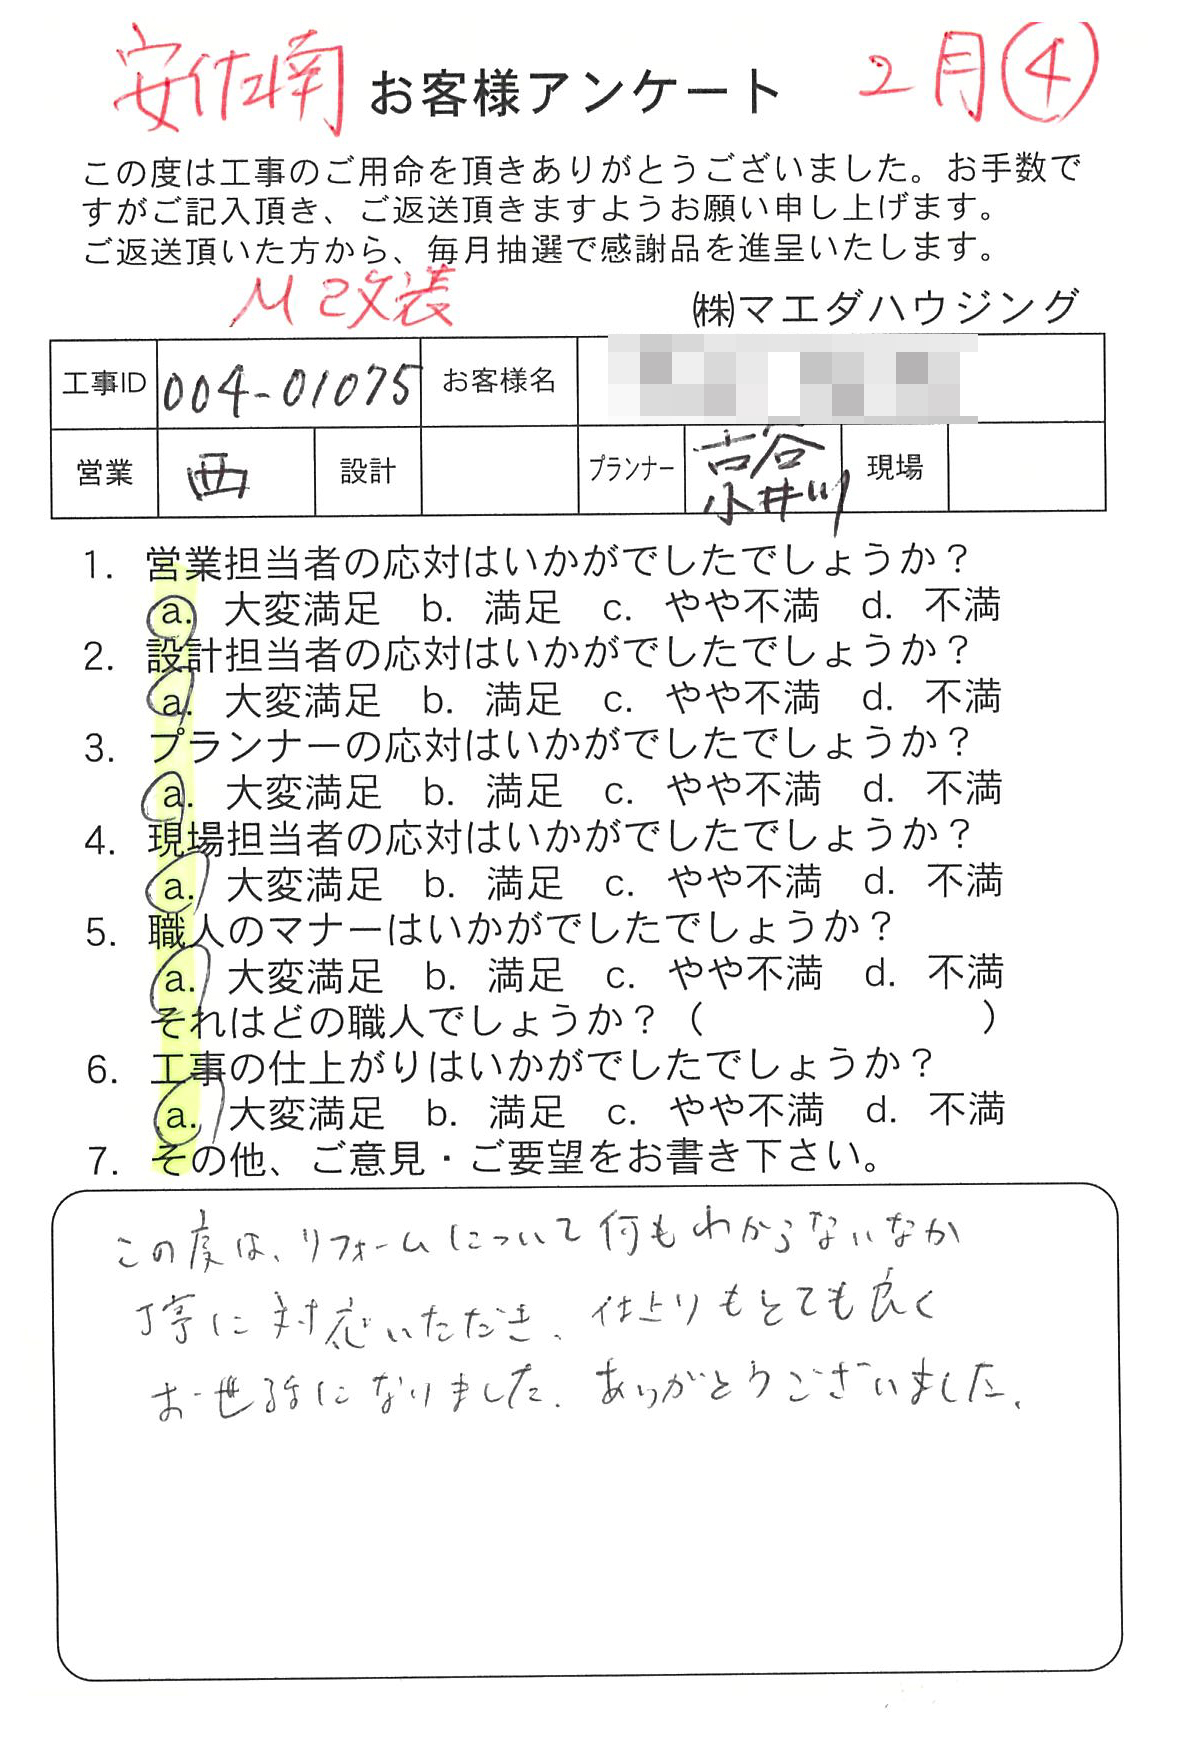 安佐南 お客様アンケート 2月④
この度は工事のご用命を頂きありがとうございました。お手数で
すがご記入頂き、ご返送頂きますようお願い申し上げます。
ご返送頂いた方から、毎月抽選で感謝品を進呈いたします。
M改装 ㈱マエダハウジング
工事ID 004-01075 お客様名
営業 西 設計 プランナー 古谷 現場
小井川
1. 営業担当者の応対はいかがでしたでしょうか？
a. 大変満足 b. 満足 c. やや不満 d. 不満
2. 設計担当者の応対はいかがでしたでしょうか？
a. 大変満足 b. 満足 c. やや不満 d. 不満
3. プランナーの応対はいかがでしたでしょうか？
a. 大変満足 b. 満足 c. やや不満 d. 不満
4. 現場担当者の応対はいかがでしたでしょうか？
a. 大変満足 b. 満足 c. やや不満 d. 不満
5. 職人のマナーはいかがでしたでしょうか？
a. 大変満足 b. 満足 c. やや不満 d. 不満
それはどの職人でしょうか？（ ）
6. 工事の仕上がりはいかがでしたでしょうか？
a. 大変満足 b. 満足 c. やや不満 d. 不満
7. その他、ご意見・ご要望をお書き下さい。
この度は、リフォームについて何もわからないなか
丁寧に対応いただき、仕上りもとても良く
お世話になりました。ありがとうございました。